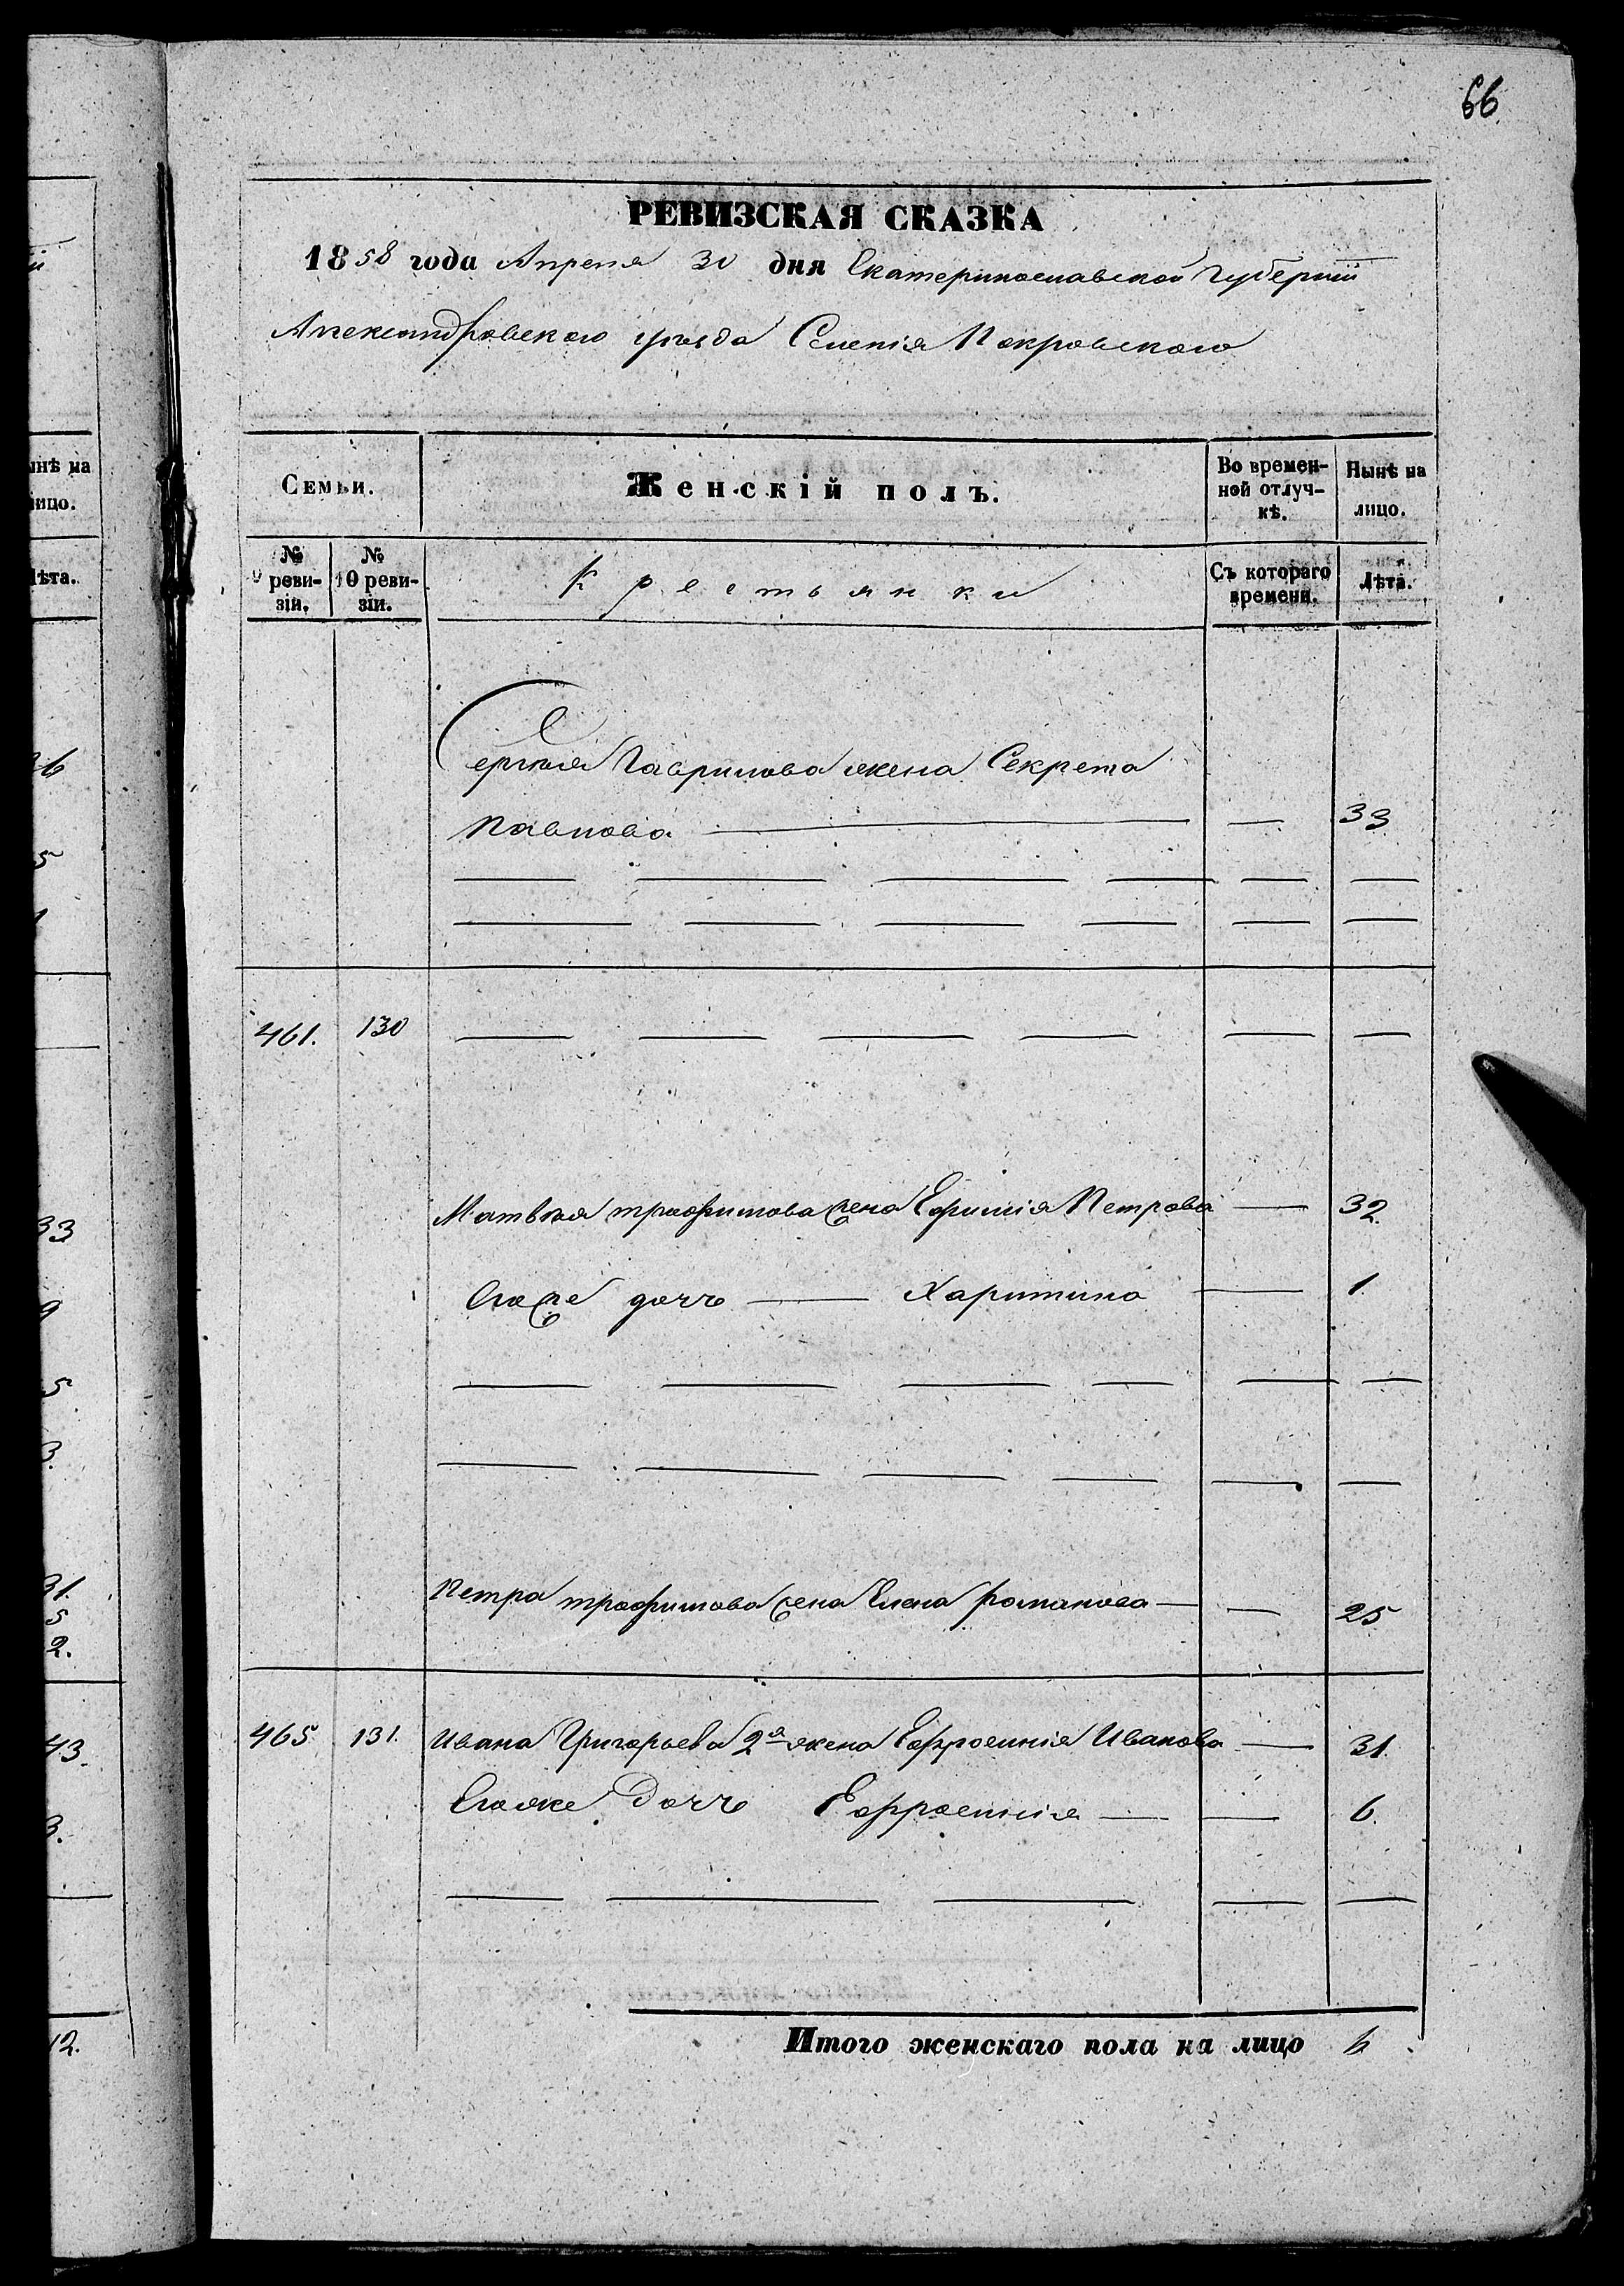 66
РЕВИЗСКАЯ СКАЗКА
1858 года Апреля 30 дня Екатеринославской Губерніи
Александровского уезда Селенія Покровского
Семьи.
Женскій полъ.
Во времен-
ной отлуч-
кѣ.
Нынѣ на
лицо.
№
9 реви-
зіи.
№
10 реви-
зіи.
Крестьянки
Съ котораго
времени.
Лѣта.
Сергѣя Гаврилова жена Секрета
Павлова — — 33
461. 130 — — — — — —
Матвѣя трофимова жена Ефимія Петрова — 32.
Егоже дочь — Харитина — 1.
Петра трофимова жена Елена романова — — 25
465 131. Ивана Григорьева 2я жена Ефросинія Иванова — 31.
Егоже Дочь Ефросинія — — 6.
Итого женскаго пола на лицо 6
ынѣ на
лицо.
ѣта.
26
5
1
33
9
5.
3.
31.
5
2.
43.
3.
12.